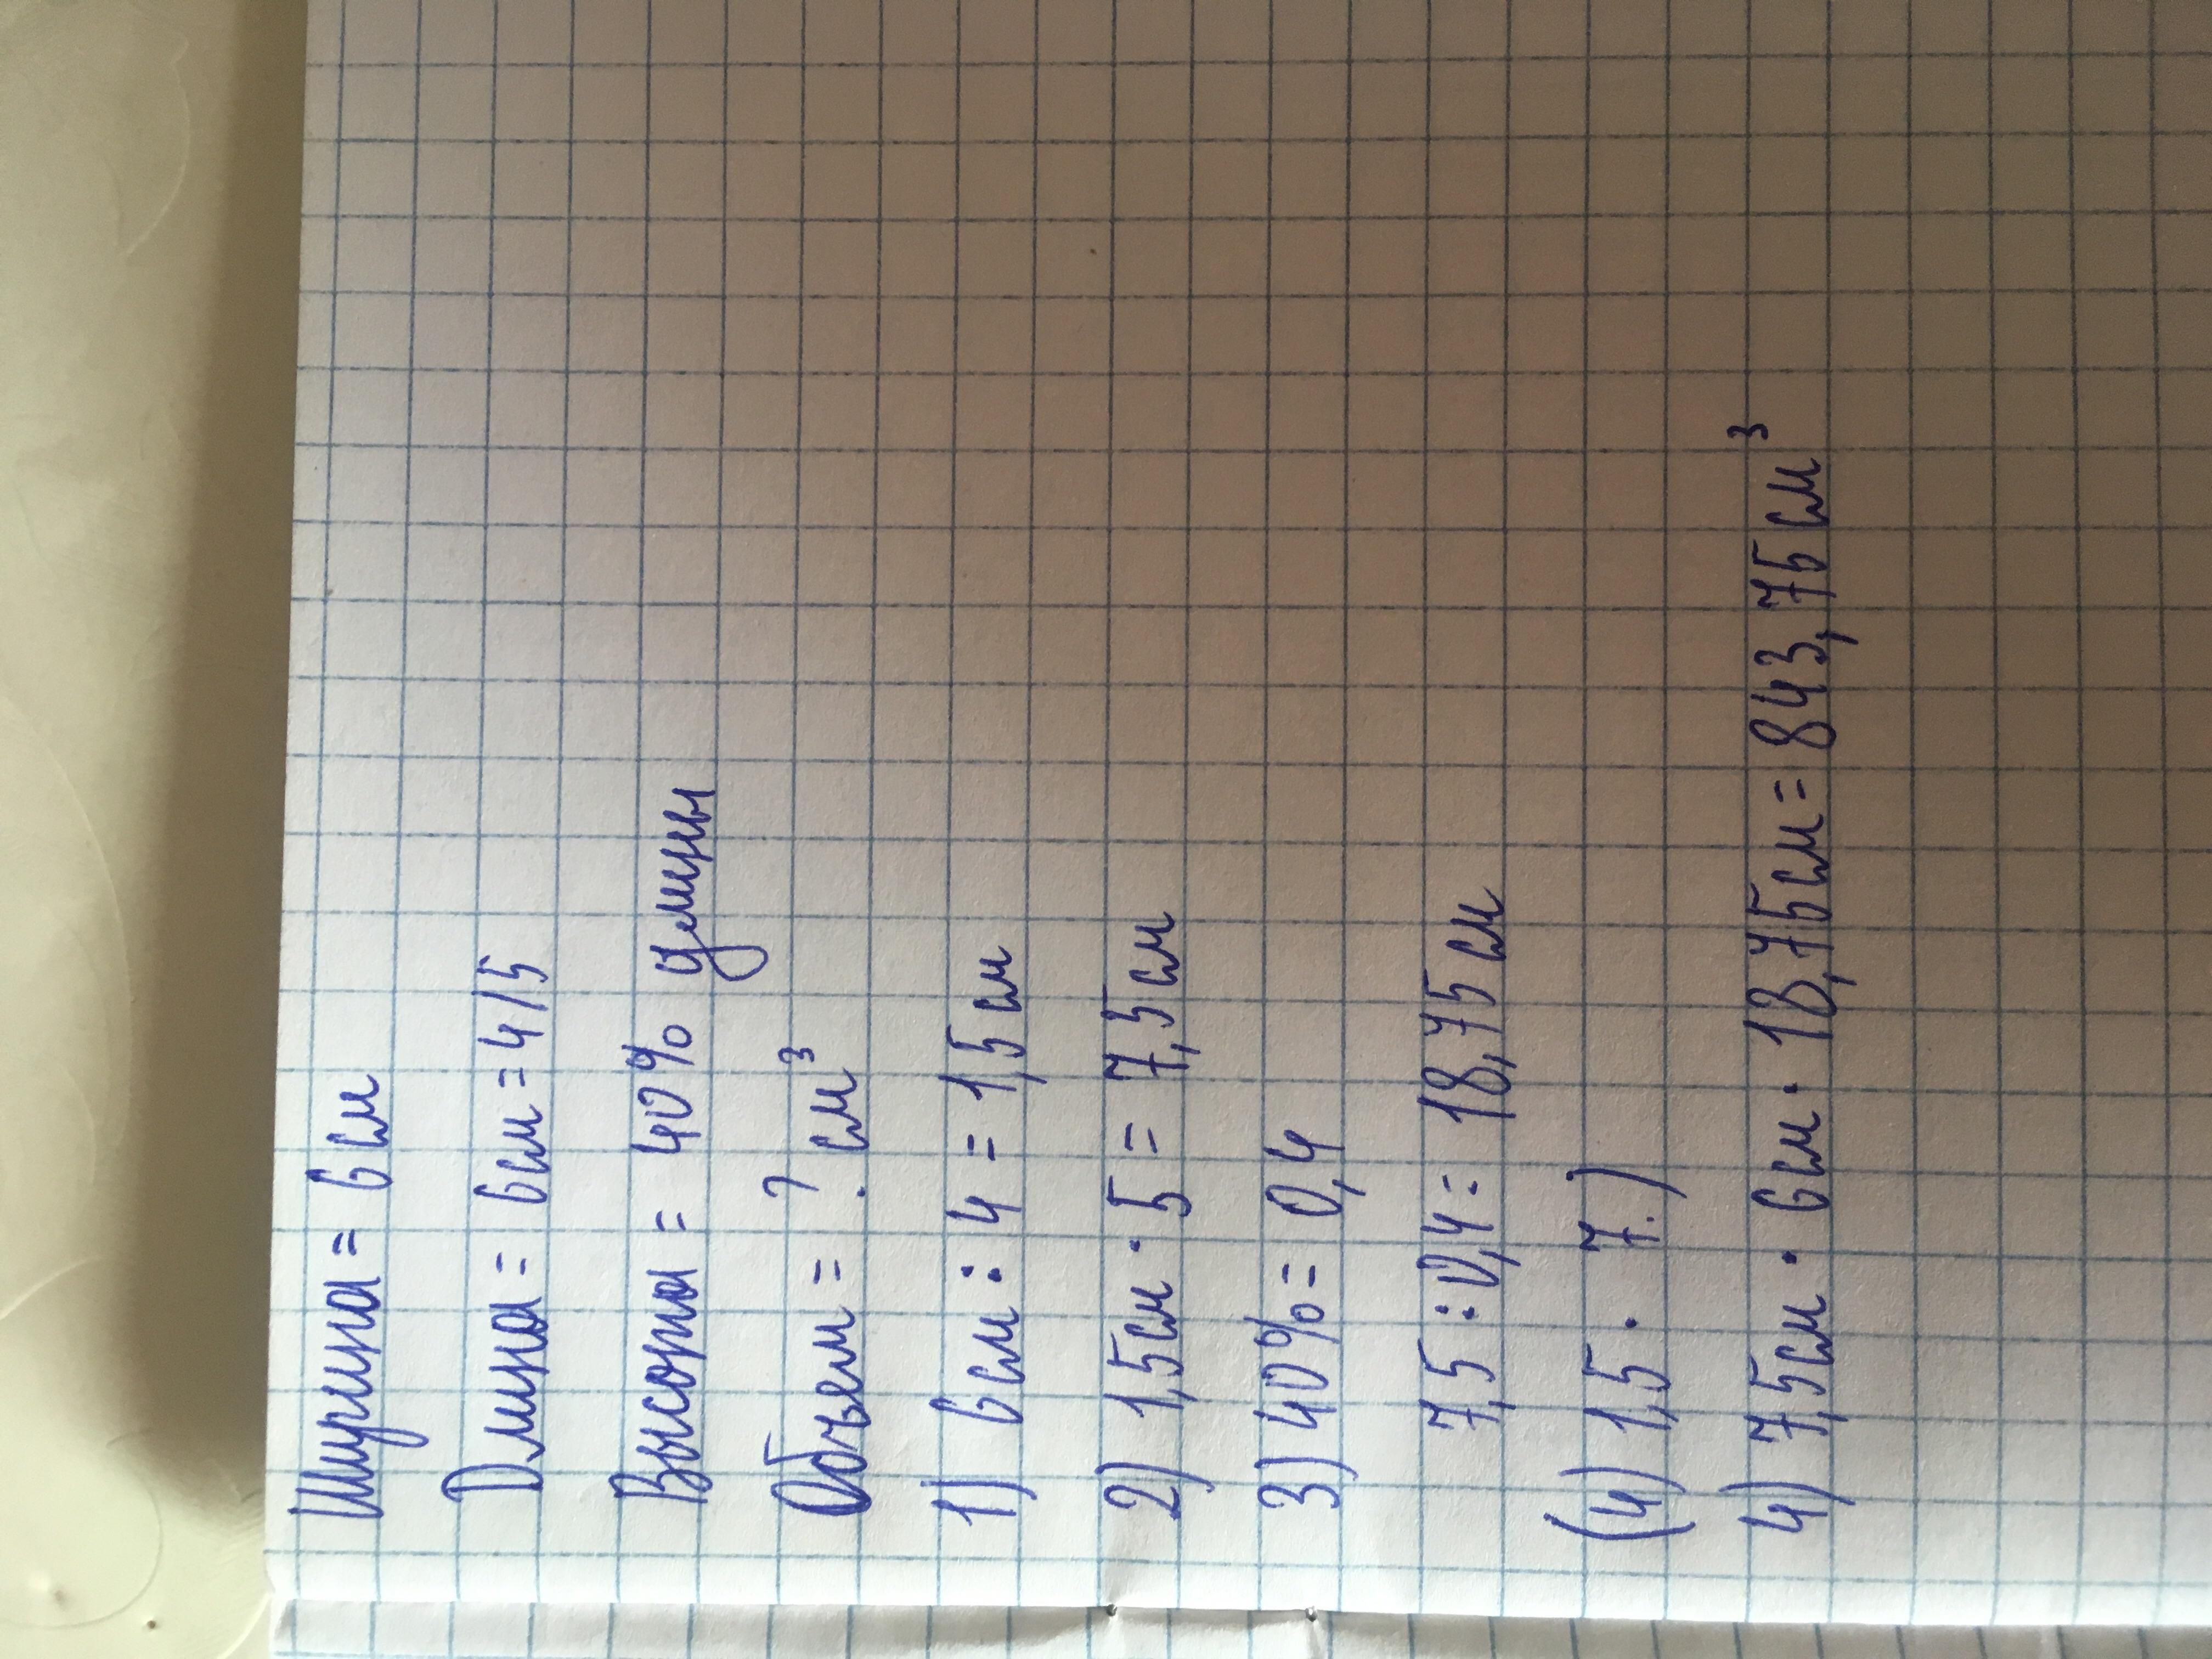 Ширина = 6 см
Длина = 6см = 4/5
Высота = 40% длины
Объем = ? см³
1) 6 см : 4 = 1,5 см
2) 1,5см · 5 = 7,5см
3) 40% = 0,4
7,5 : 0,4 = 18,75 см
(4) 1,5 · 7.)
4) 7,5см · 6см · 18,75см = 843,75см³